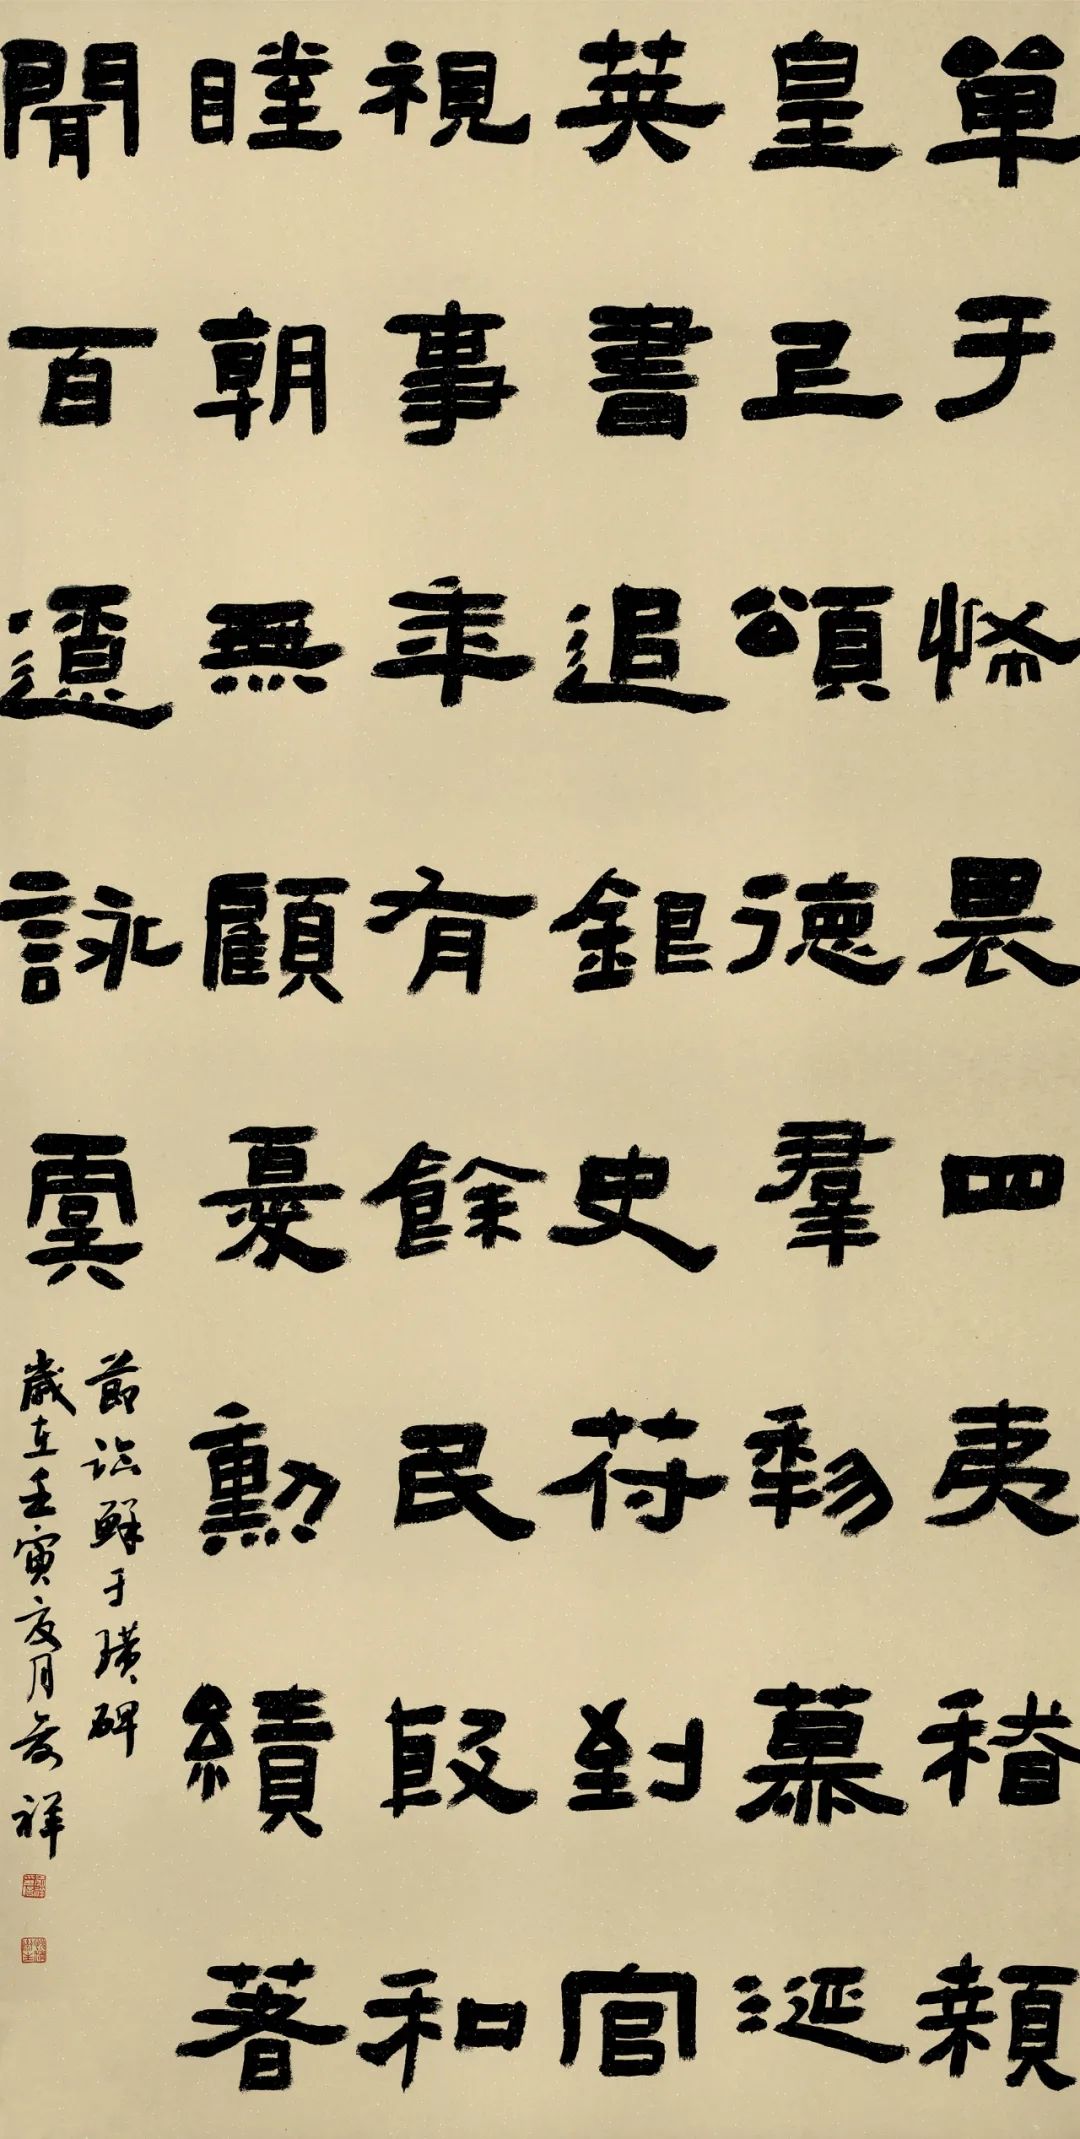 單于悕畏四夷稽顙
皇上頌德羣黎慕涎
莢書追銀史苻到官
視事年有餘民殷和
睦朝無顧憂勳績著
聞百遼詠虞
節臨鮮于璜碑
歲在壬寅夏月祥